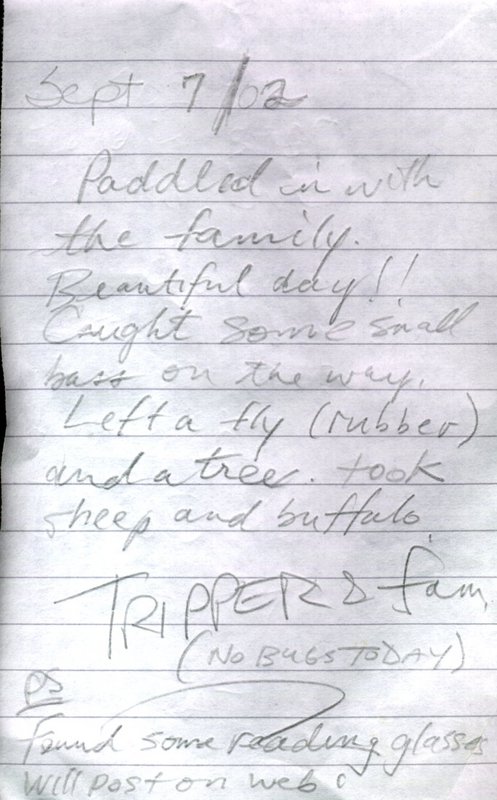 Sept 7/02
Paddled in with
the family.
Beautiful day!!
Caught some small
bass on the way.
Left a fly (rubber)
and a tree. took
sheep and buffalo.
TRIPPER & fam.
(NO BUGS TODAY)
PS
Found some reading glasses
Will post on web!